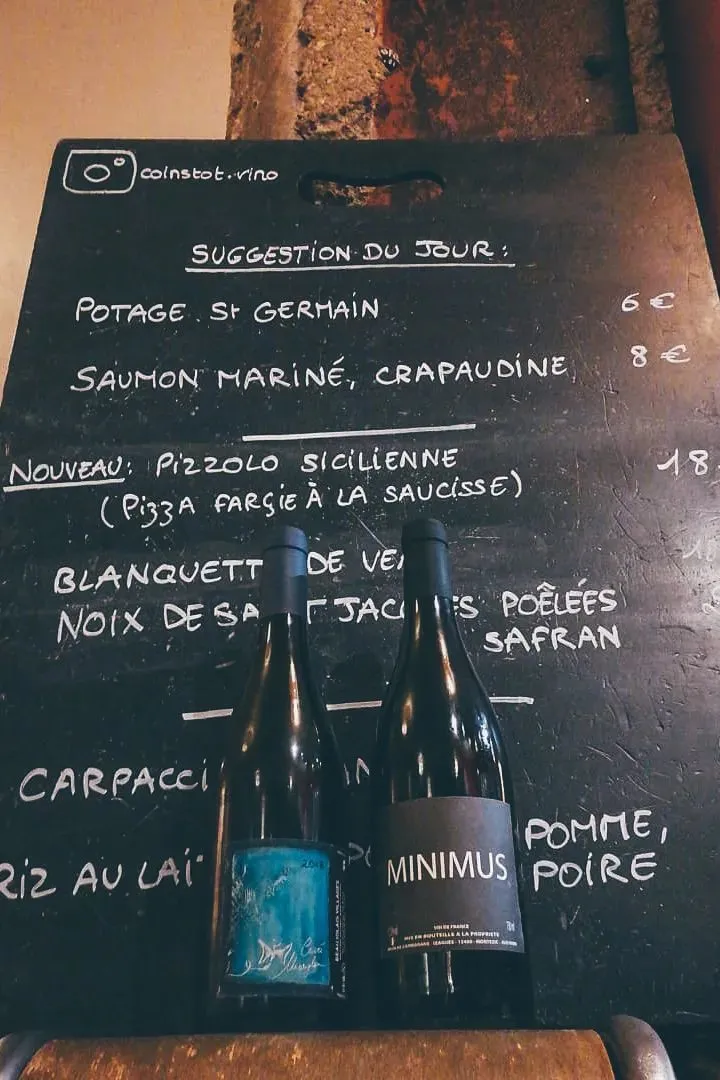 coinstot.vino
SUGGESTION DU JOUR:
POTAGE St GERMAIN 6 €
SAUMON MARINÉ, CRAPAUDINE 8 €
NOUVEAU: PIZZOLO SICILIENNE 18
(PIZZA FARÇIE À LA SAUCISSE)
BLANQUETT DE VE
NOIX DE SA T JAC ES POÊLÉES
SAFRAN
CARPACCI
RIZ AU LAI POMME,
POIRE
2018
BEAUJOLAIS VILLAGES
MINIMUS
VIN DE FRANCE
MIS EN BOUTEILLE A LA PROPRIETE